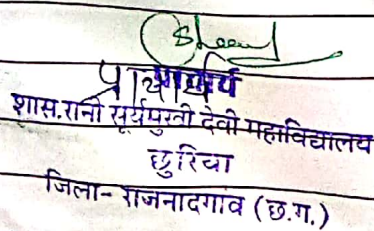 प्राचार्य
शास.रानी सूर्यमुखी देवी महाविद्यालय
छुरिया
जिला- राजनादगाव (छ.ग.)